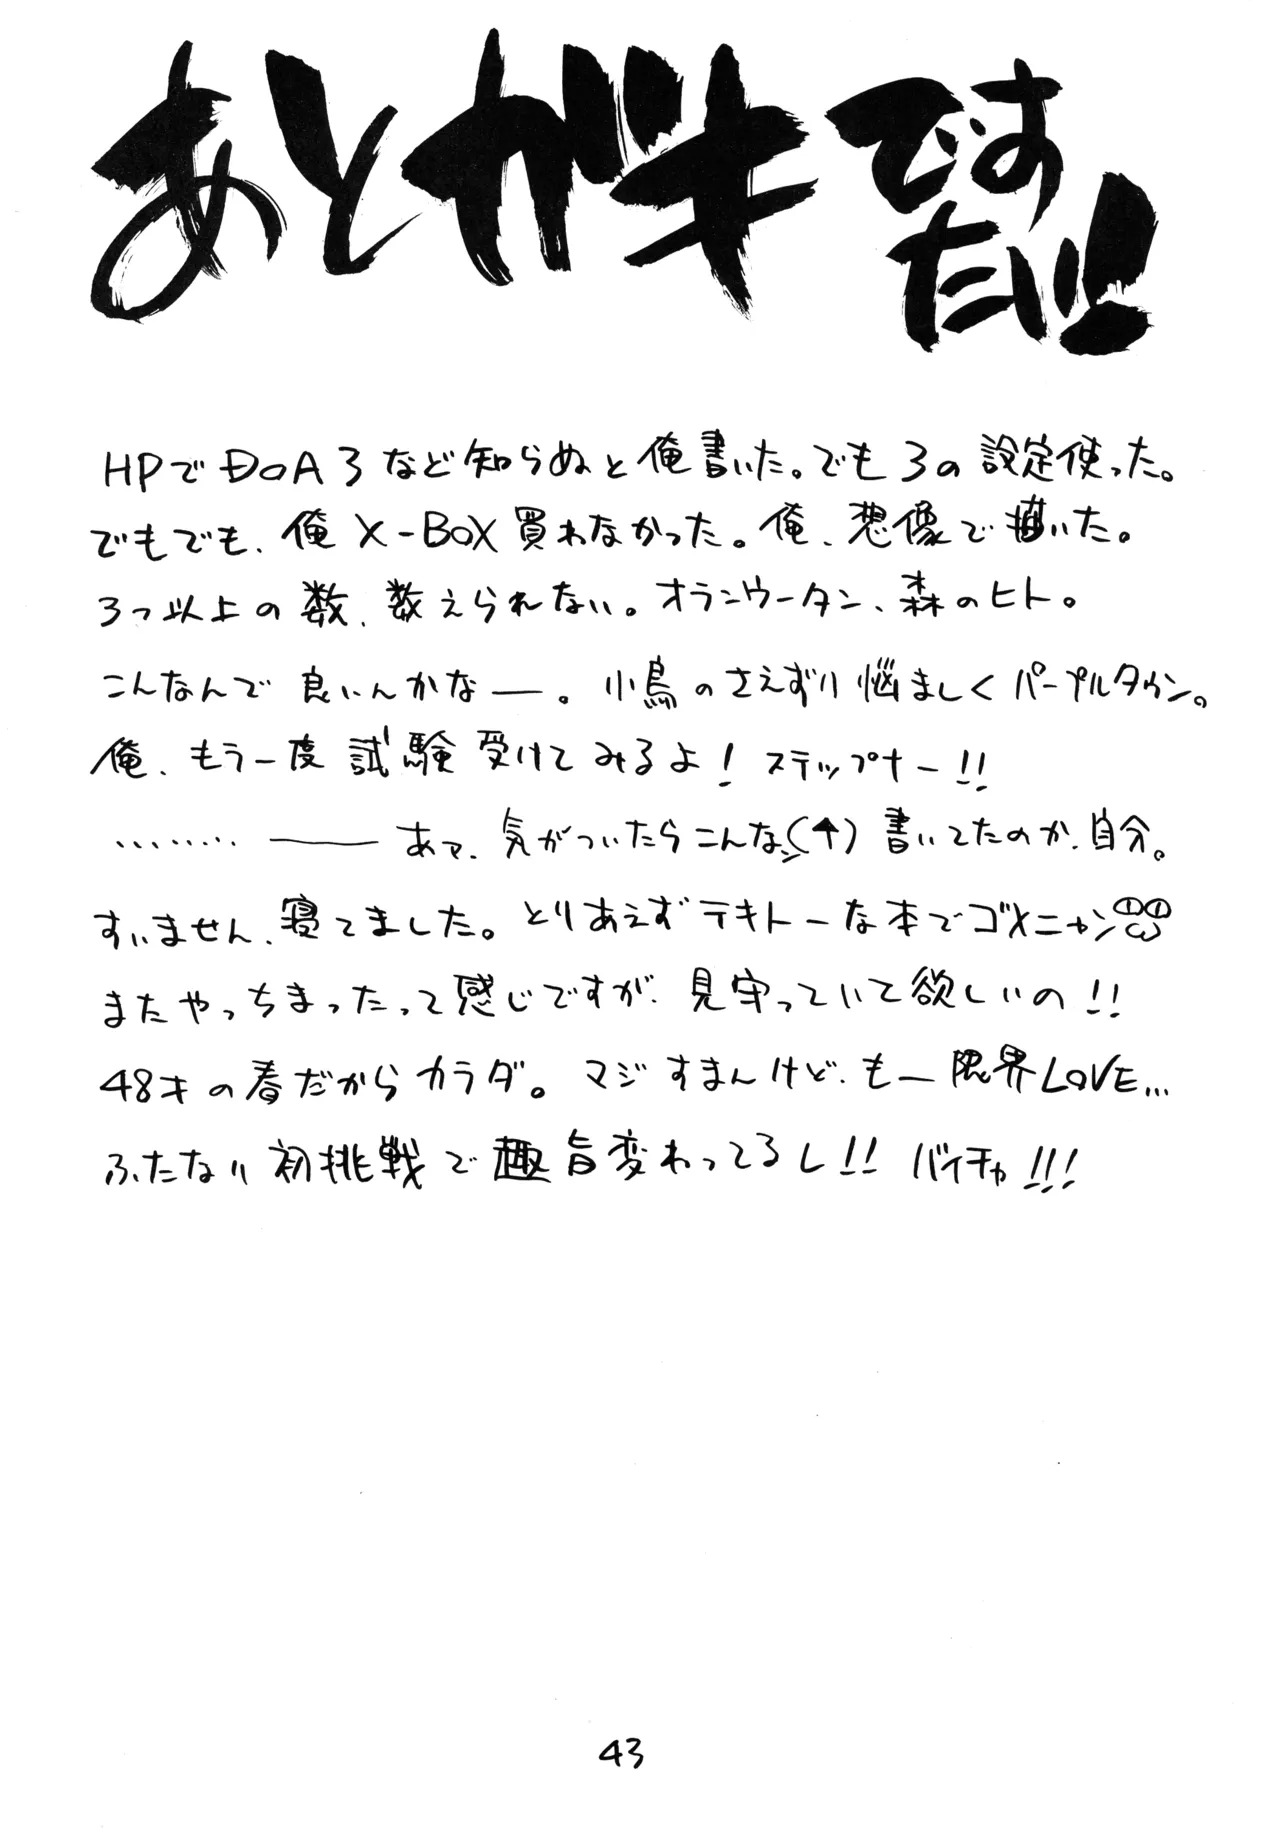 あとがキですたい!!
HPでDOA3など知らぬと俺書いた。でも3の設定使った。
でもでも、俺X-BOX買わなかった。俺、想像で描いた。
3つ以上の数、数えられない。オランウータン、森のヒト。
こんなんで良いんかなー。小鳥のさえずり悩ましくパープルタウン。
俺、もう一度試験受けてみるよ!ステップナー!!
‥‥‥‥ ――― あァ、気がついたらこんな(↑)書いてたのか、自分。
すいません、寝てました。とりあえずテキトーな本でゴメニャン
またやっちまったって感じですが、見守っていて欲しいの!!
48才の春だからカラダ。マジすまんけど、もー限界LOVE…
ふたなり初挑戦で趣旨変わってるし!!バイチャ!!!
43